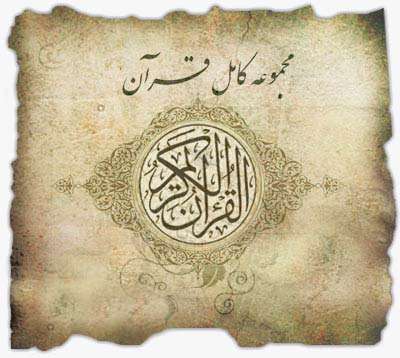 مجموعه کامل قرآن
القرآن الكريم